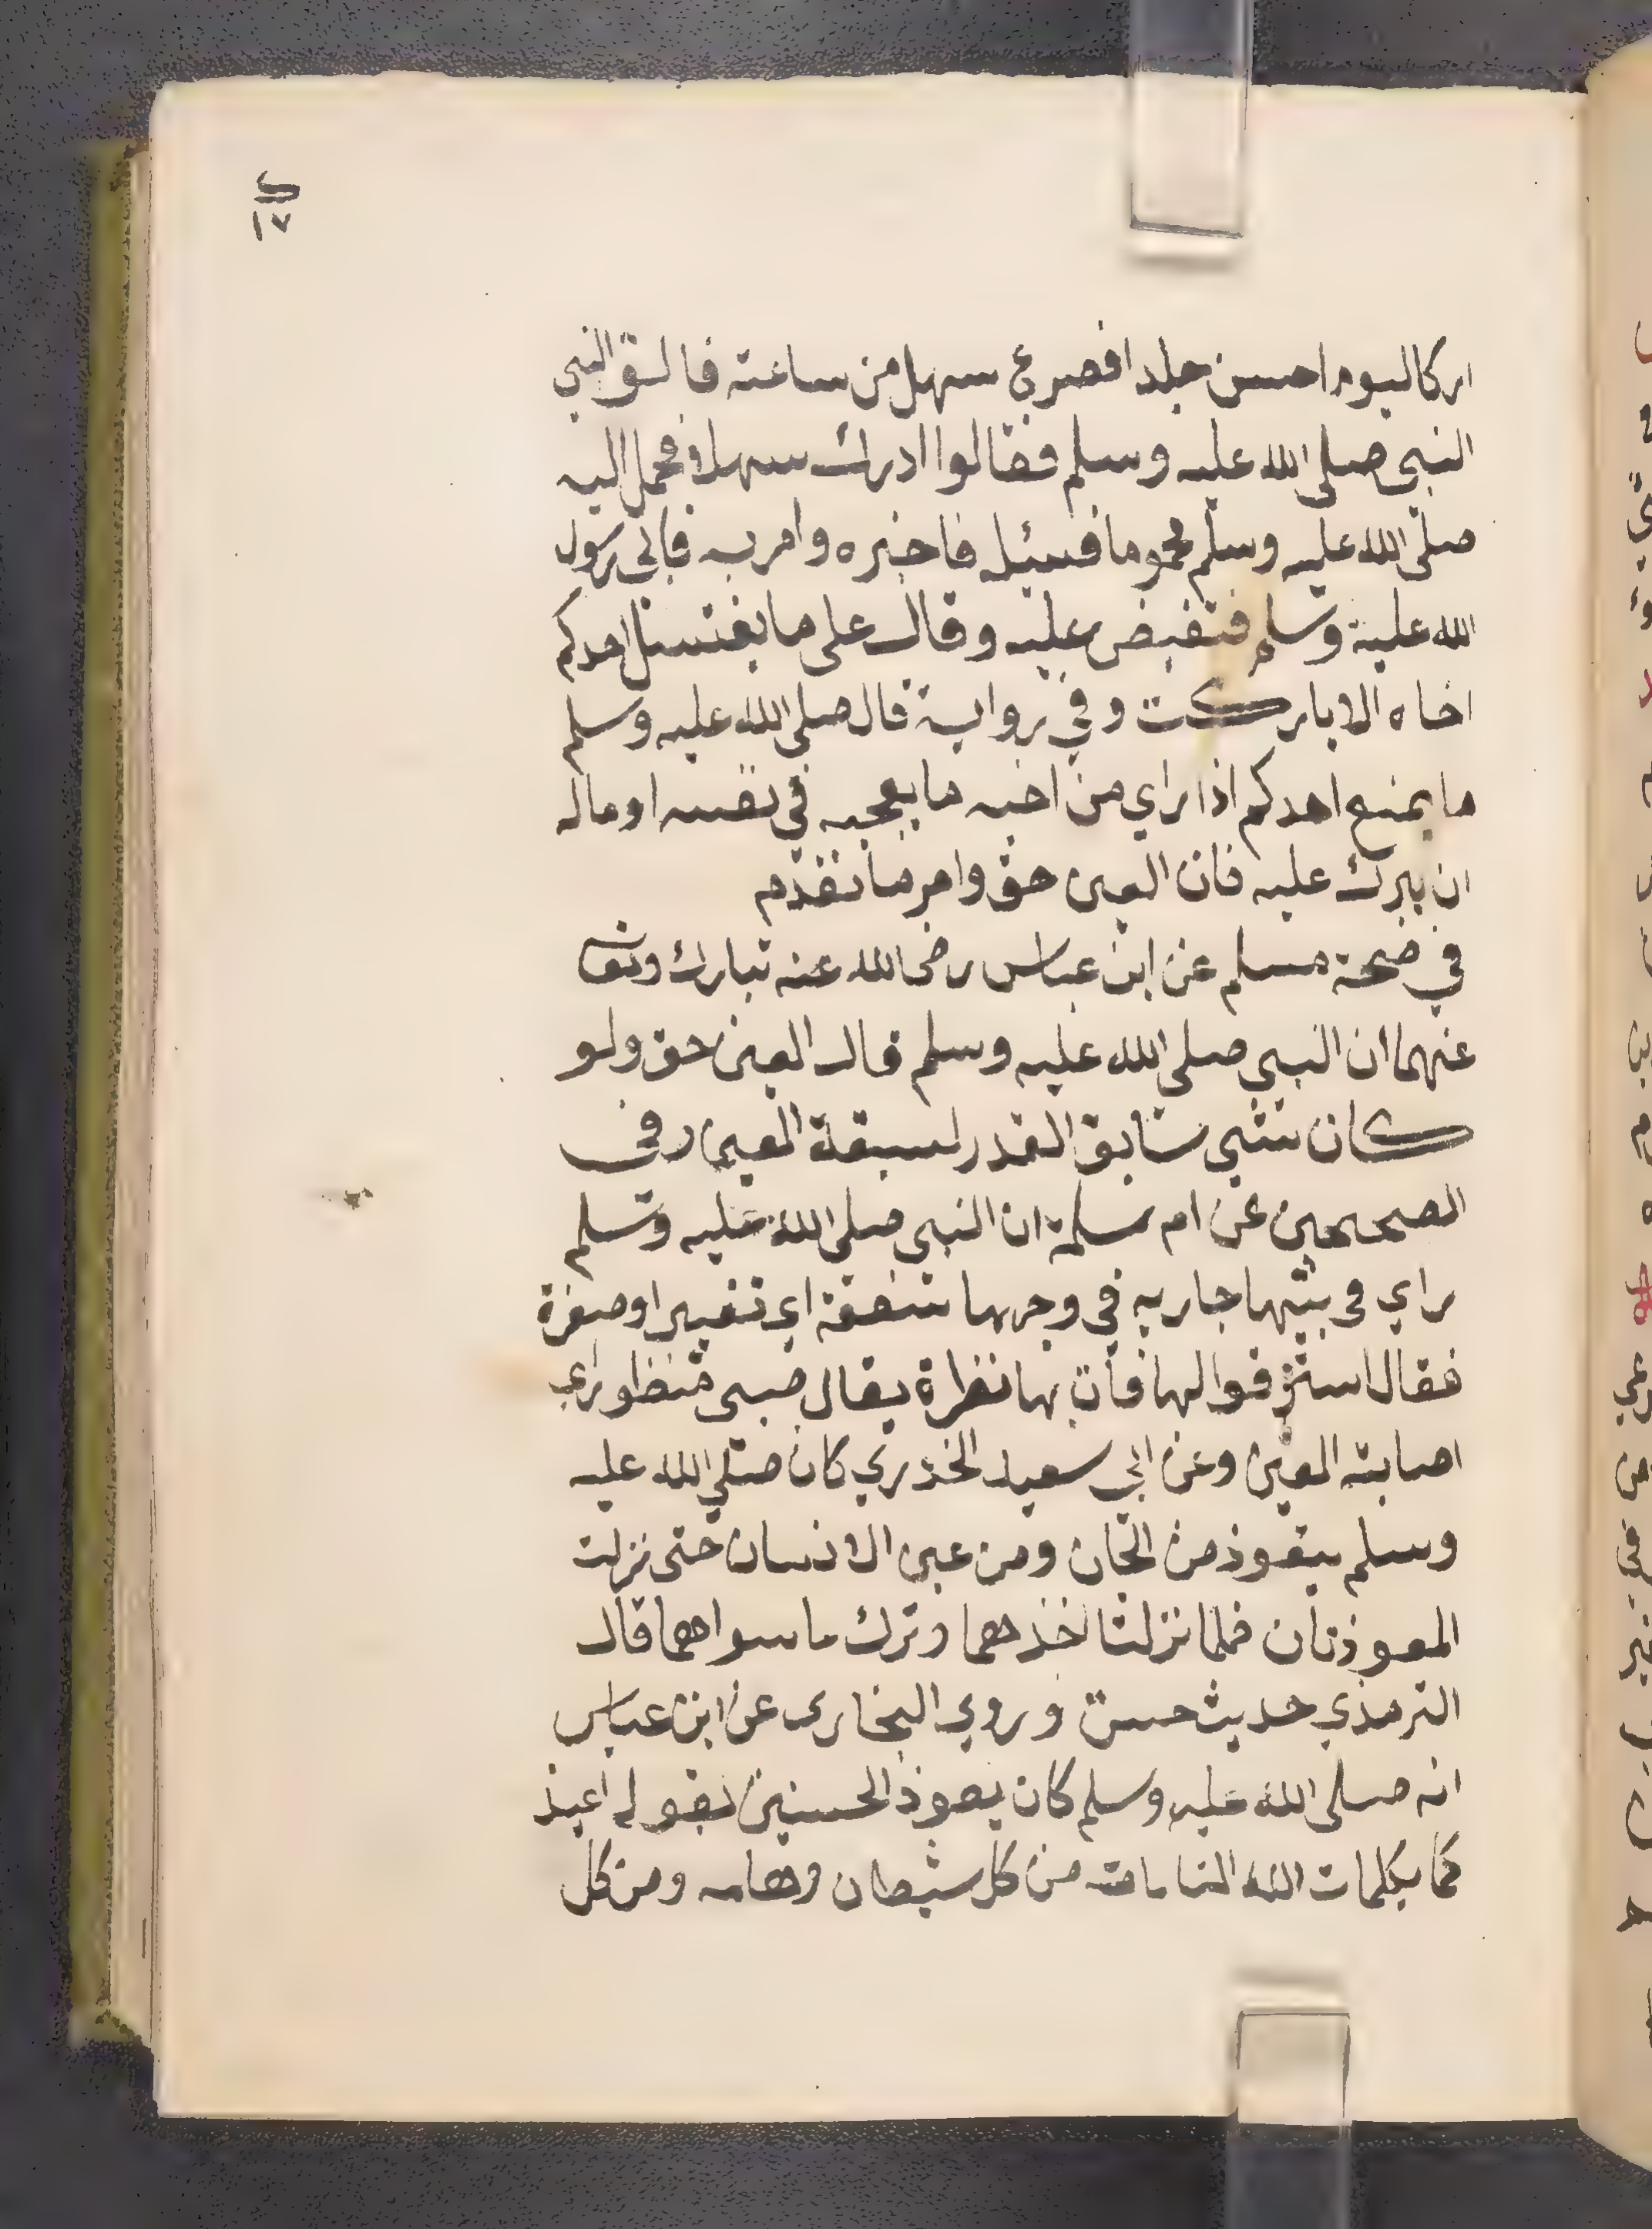 ١٧
ار كاليوم احسن جلد افصرع سهل من ساعته فالق النبي
النبي صلى الله عليه وسلم فقالوا ادرك سهلا فحمل اليه
صلى الله عليه وسلم محموما فسئيل فاخبره وامر به فاتي رسول
الله علية وسلم فتقبض عليه وقال على ما يغتسل احدكم
اخاه الا باركت وفي رواية قال صلى الله عليه وسلم
ما يمنع احدكم اذا راي من اخيه ما يعجبه في نفسه او ماله
ان يبرك عليه فان العين حق وامر ما تقدم
في ضحة مسلم عن ابن عباس رضى الله عنه تبارك وتعا
عنهما ان النبي صلى الله عليه وسلم قال العين حق ولو
كان شئي سابق القدر لسبقة العين وفي
الصحيحين عن ام سلمة ان النبي صلى الله عليه وسلم
راي في بيتها جاريه في وجهها سفعة اي تغيير او صفرة
فقال استرقوا لها فان بها نظرة يقال صبي منظور اي
اصابته العين وعن ابي سعيد الخذري كان صلي الله عليه
وسلم يتعوذ من الجان ومن عين الانسان حتى نزلت
المعوذتان فلما نزلتا اخذ هما وترك ما سواهما قال
الترمذي حديث حسن وروي البخاري عن ابن عباس
انه صلى الله عليه وسلم كان يعوذ الحسنين بقوله اعيذ
كما بكلمات الله التامامة من كل شيطان وهامه ومن كل